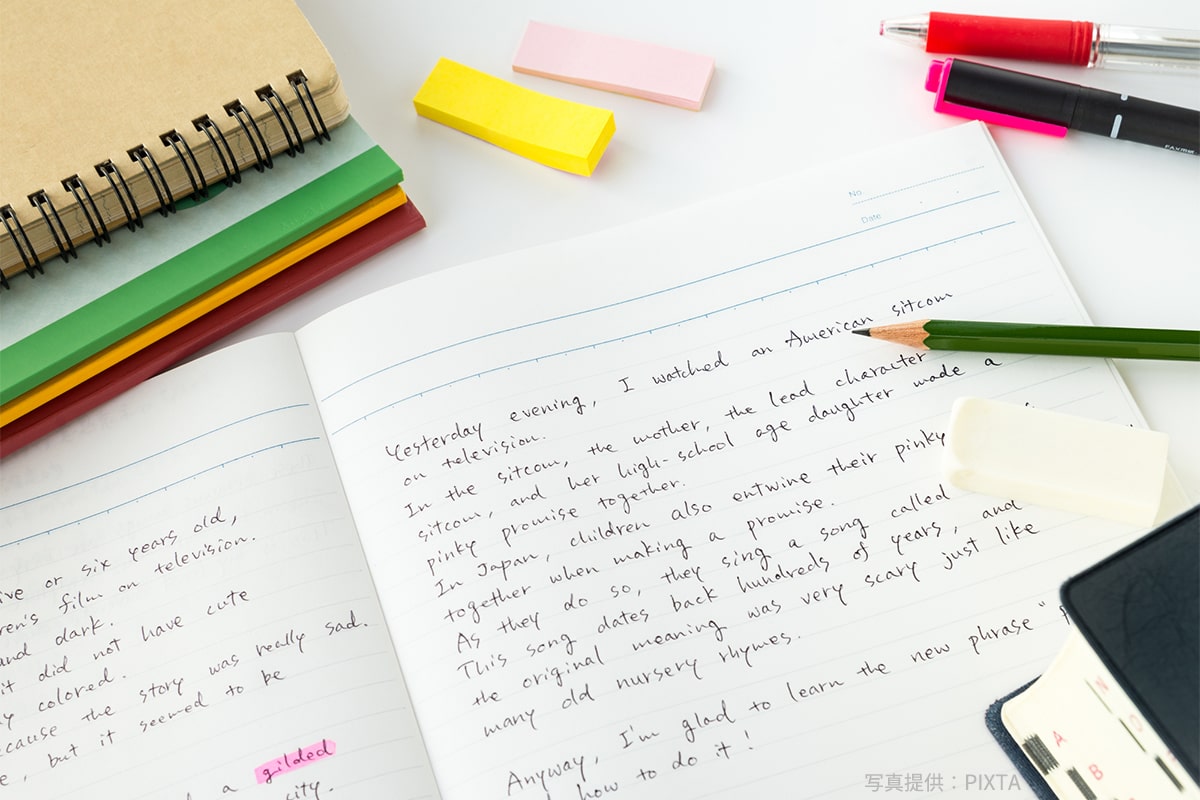 No.
Date
Yesterday evening, I watched an American sitcom
on television.
In the sitcom, the mother, the lead character
sitcom, and her high-school age daughter made a
pinky promise together.
In Japan, children also entwine their pinky
together when making a promise.
As they do so, they sing a song called
This song dates back hundreds of years, and
the original meaning was very scary just like
many old nursery rhymes.
Anyway, I'm glad to learn the new phrase "
how to do it!
or six years old,
film on television.
and dark.
it did not have cute
colored.
the story was really sad.
, but it seemed to be
a gilded
city.
A
B
N
写真提供：PIXTA